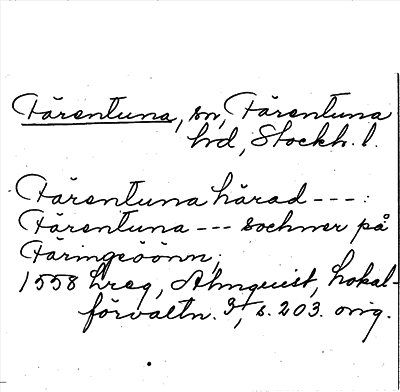 Färentuna, sn, Färentuna
hd, Stockh. l.
Färentuna härad ---:
Färentuna --- sochner på
Färingeöönn;
1558 Lreg, Almquist, Lokal-
förvaltn. 3, s. 203. orig.